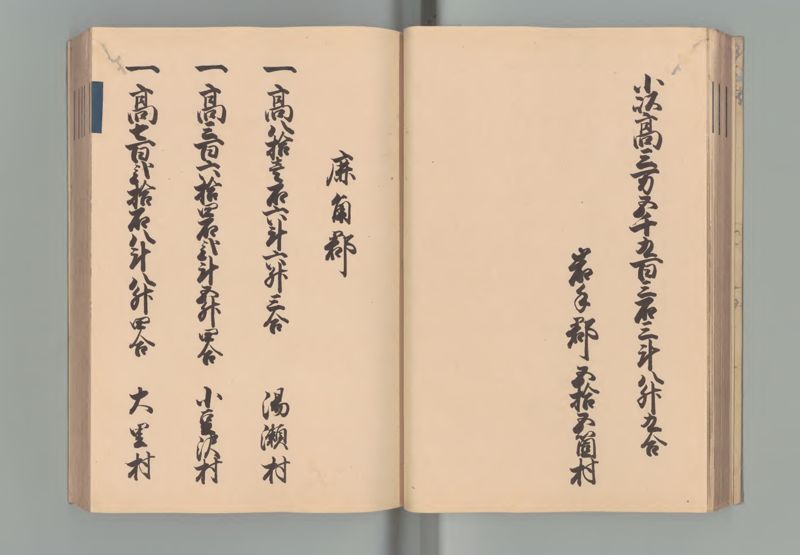 小以高三万五千九百三石三斗八升九合
岩手郡五拾五箇村
鹿角郡
一高八拾壱石六斗六升三合 湯瀬村
一高三百六拾四石弐斗五升四合 小豆沢村
一高七百弐拾石八斗八升四合 大里村